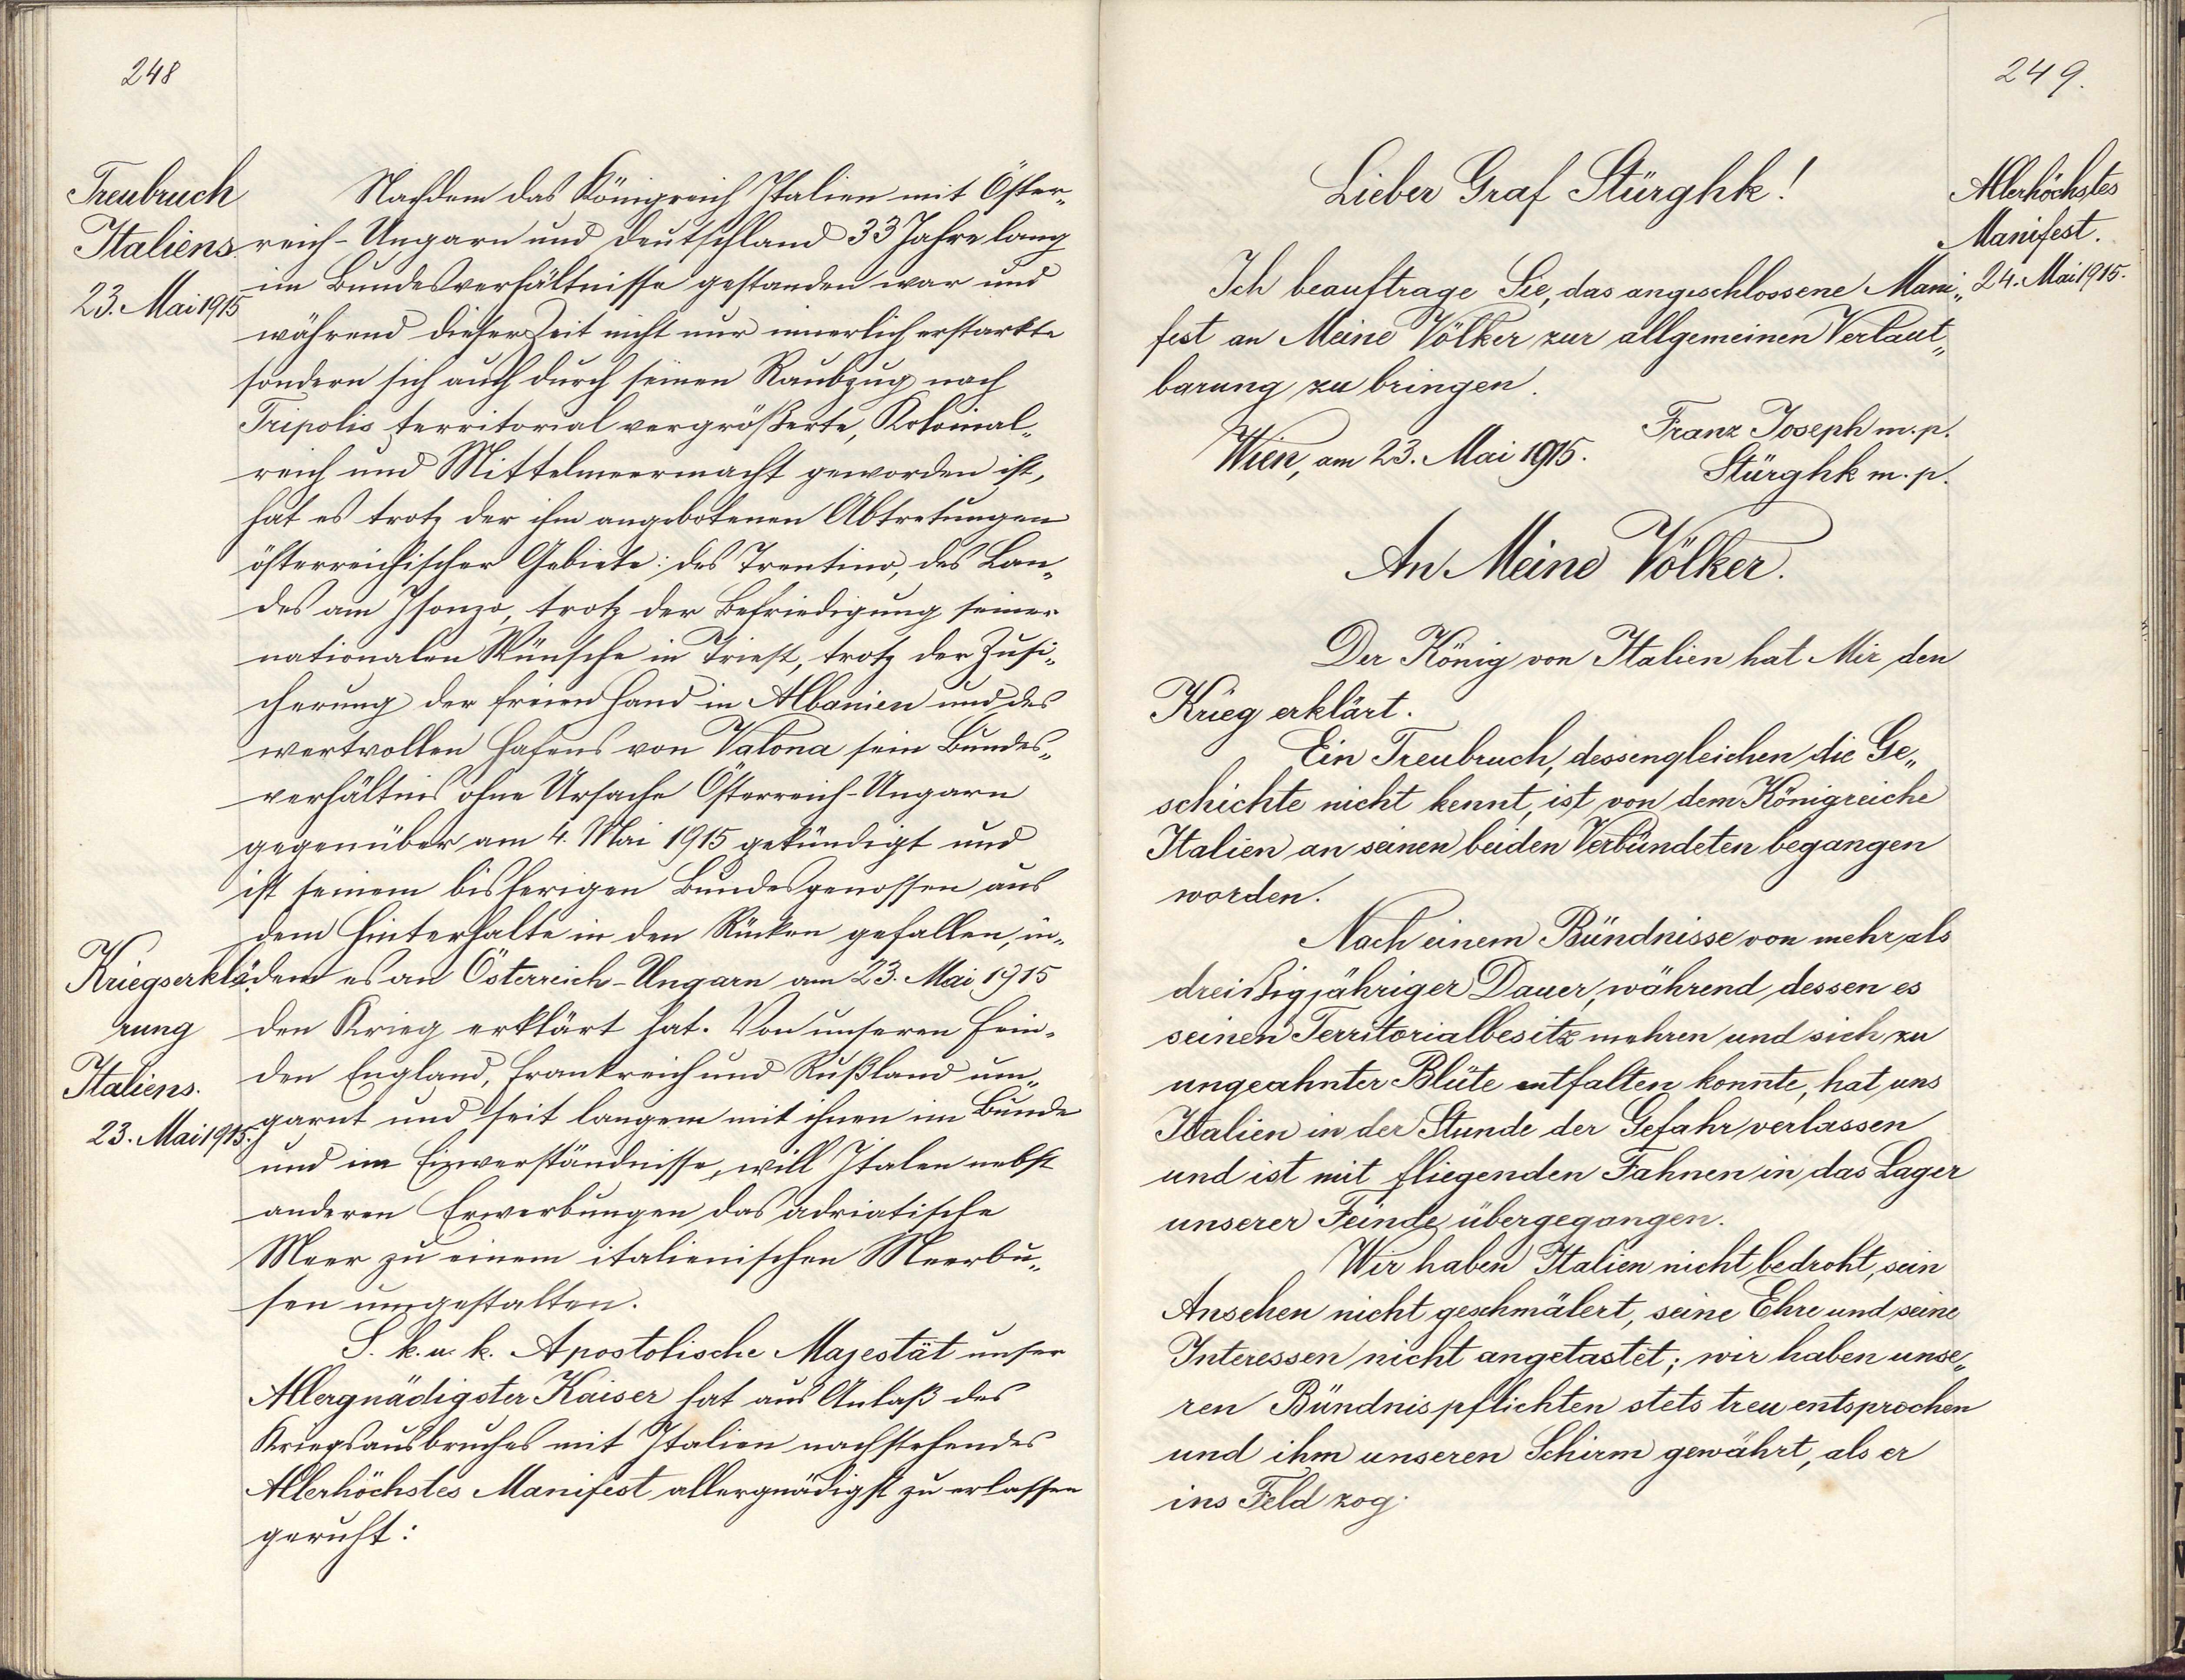 248
Treubruch
Italiens
23. Mai 1915
Nachdem das Königreich Italien mit Öster„
reich-Ungarn und Deutschland 33 Jahre lang
im Bundesverhältnisse gestanden war und
während dieser Zeit nicht nur innerlich erstarkte
sondern sich auch durch seinen Raubzug nach
Tripolis territorial vergrößerte, Kolonial„
reich und Mittelmeermacht geworden ist,
hat es trotz der ihm angebotenen Abtretungen
österreichischer Gebiete: des Trentino, des Lan„
des am Isonzo, trotz der Befriedigung seiner
nationalen Wünsche in Triest, trotz der Zusi„
cherung der freien Hand in Albanien und des
wertvollen Hafens von Valona sein Bundes„
verhältnis ohne Ursache Österreich-Ungarn
gegenüber am 4. Mai 1915 gekündigt und
ist seinem bisherigen Bundesgenossen aus
dem Hinterhalte in den Rücken gefallen, in„
dem es an Österreich-Ungarn am 23. Mai 1915
den Krieg erklärt hat. Von unseren Fein„
den England, Frankreich und Rußland um„
garnt und seit langem mit ihnen im Bunde
und im Einverständnisse, will Italen nebst
anderen Erwerbungen das adriatische
Meer zu einem italienischen Meerbu„
sen umgestalten.
Kriegserklä„
rung
Italiens.
23. Mai 1915.
S. k. u. k. Apostolische Majestät unser
Allergnädigster Kaiser hat aus Anlaß des
Kriegsausbruches mit Italien nachstehendes
Allerhöchstes Manifest allergnädigst zu erlassen
geruht:
249.
Allerhöchstes
Manifest.
24. Mai 1915.
Lieber Graf Stürghk!
Ich beauftrage Sie, das angeschlossene Mani„
fest an Meine Völker zur allgemeinen Verlaut„
barung zu bringen.
Franz Joseph m. p.
Wien, am 23. Mai 1915.
Stürghk m. p.
An Meine Völker.
Der König von Italien hat Mir den
Krieg erklärt.
Ein Treubruch, dessengleichen die Ge„
schichte nicht kennt, ist von dem Königreiche
Italien an seinen beiden Verbündeten begangen
worden.
Nach einem Bündnisse von mehr als
dreißigjähriger Dauer, während dessen es
seinen Territorialbesitz mehren und sich zu
ungeahnter Blüte entfalten konnte, hat uns
Italien in der Stunde der Gefahr verlassen
und ist mit fliegenden Fahnen in das Lager
unserer Feinde übergegangen.
Wir haben Italien nicht bedroht, sein
Ansehen nicht geschmälert, seine Ehre und seine
Interessen nicht angetastet; wir haben unse„
ren Bündnispflichten stets treu entsprochen
und ihm unseren Schirm gewährt, als er
ins Feld zog.